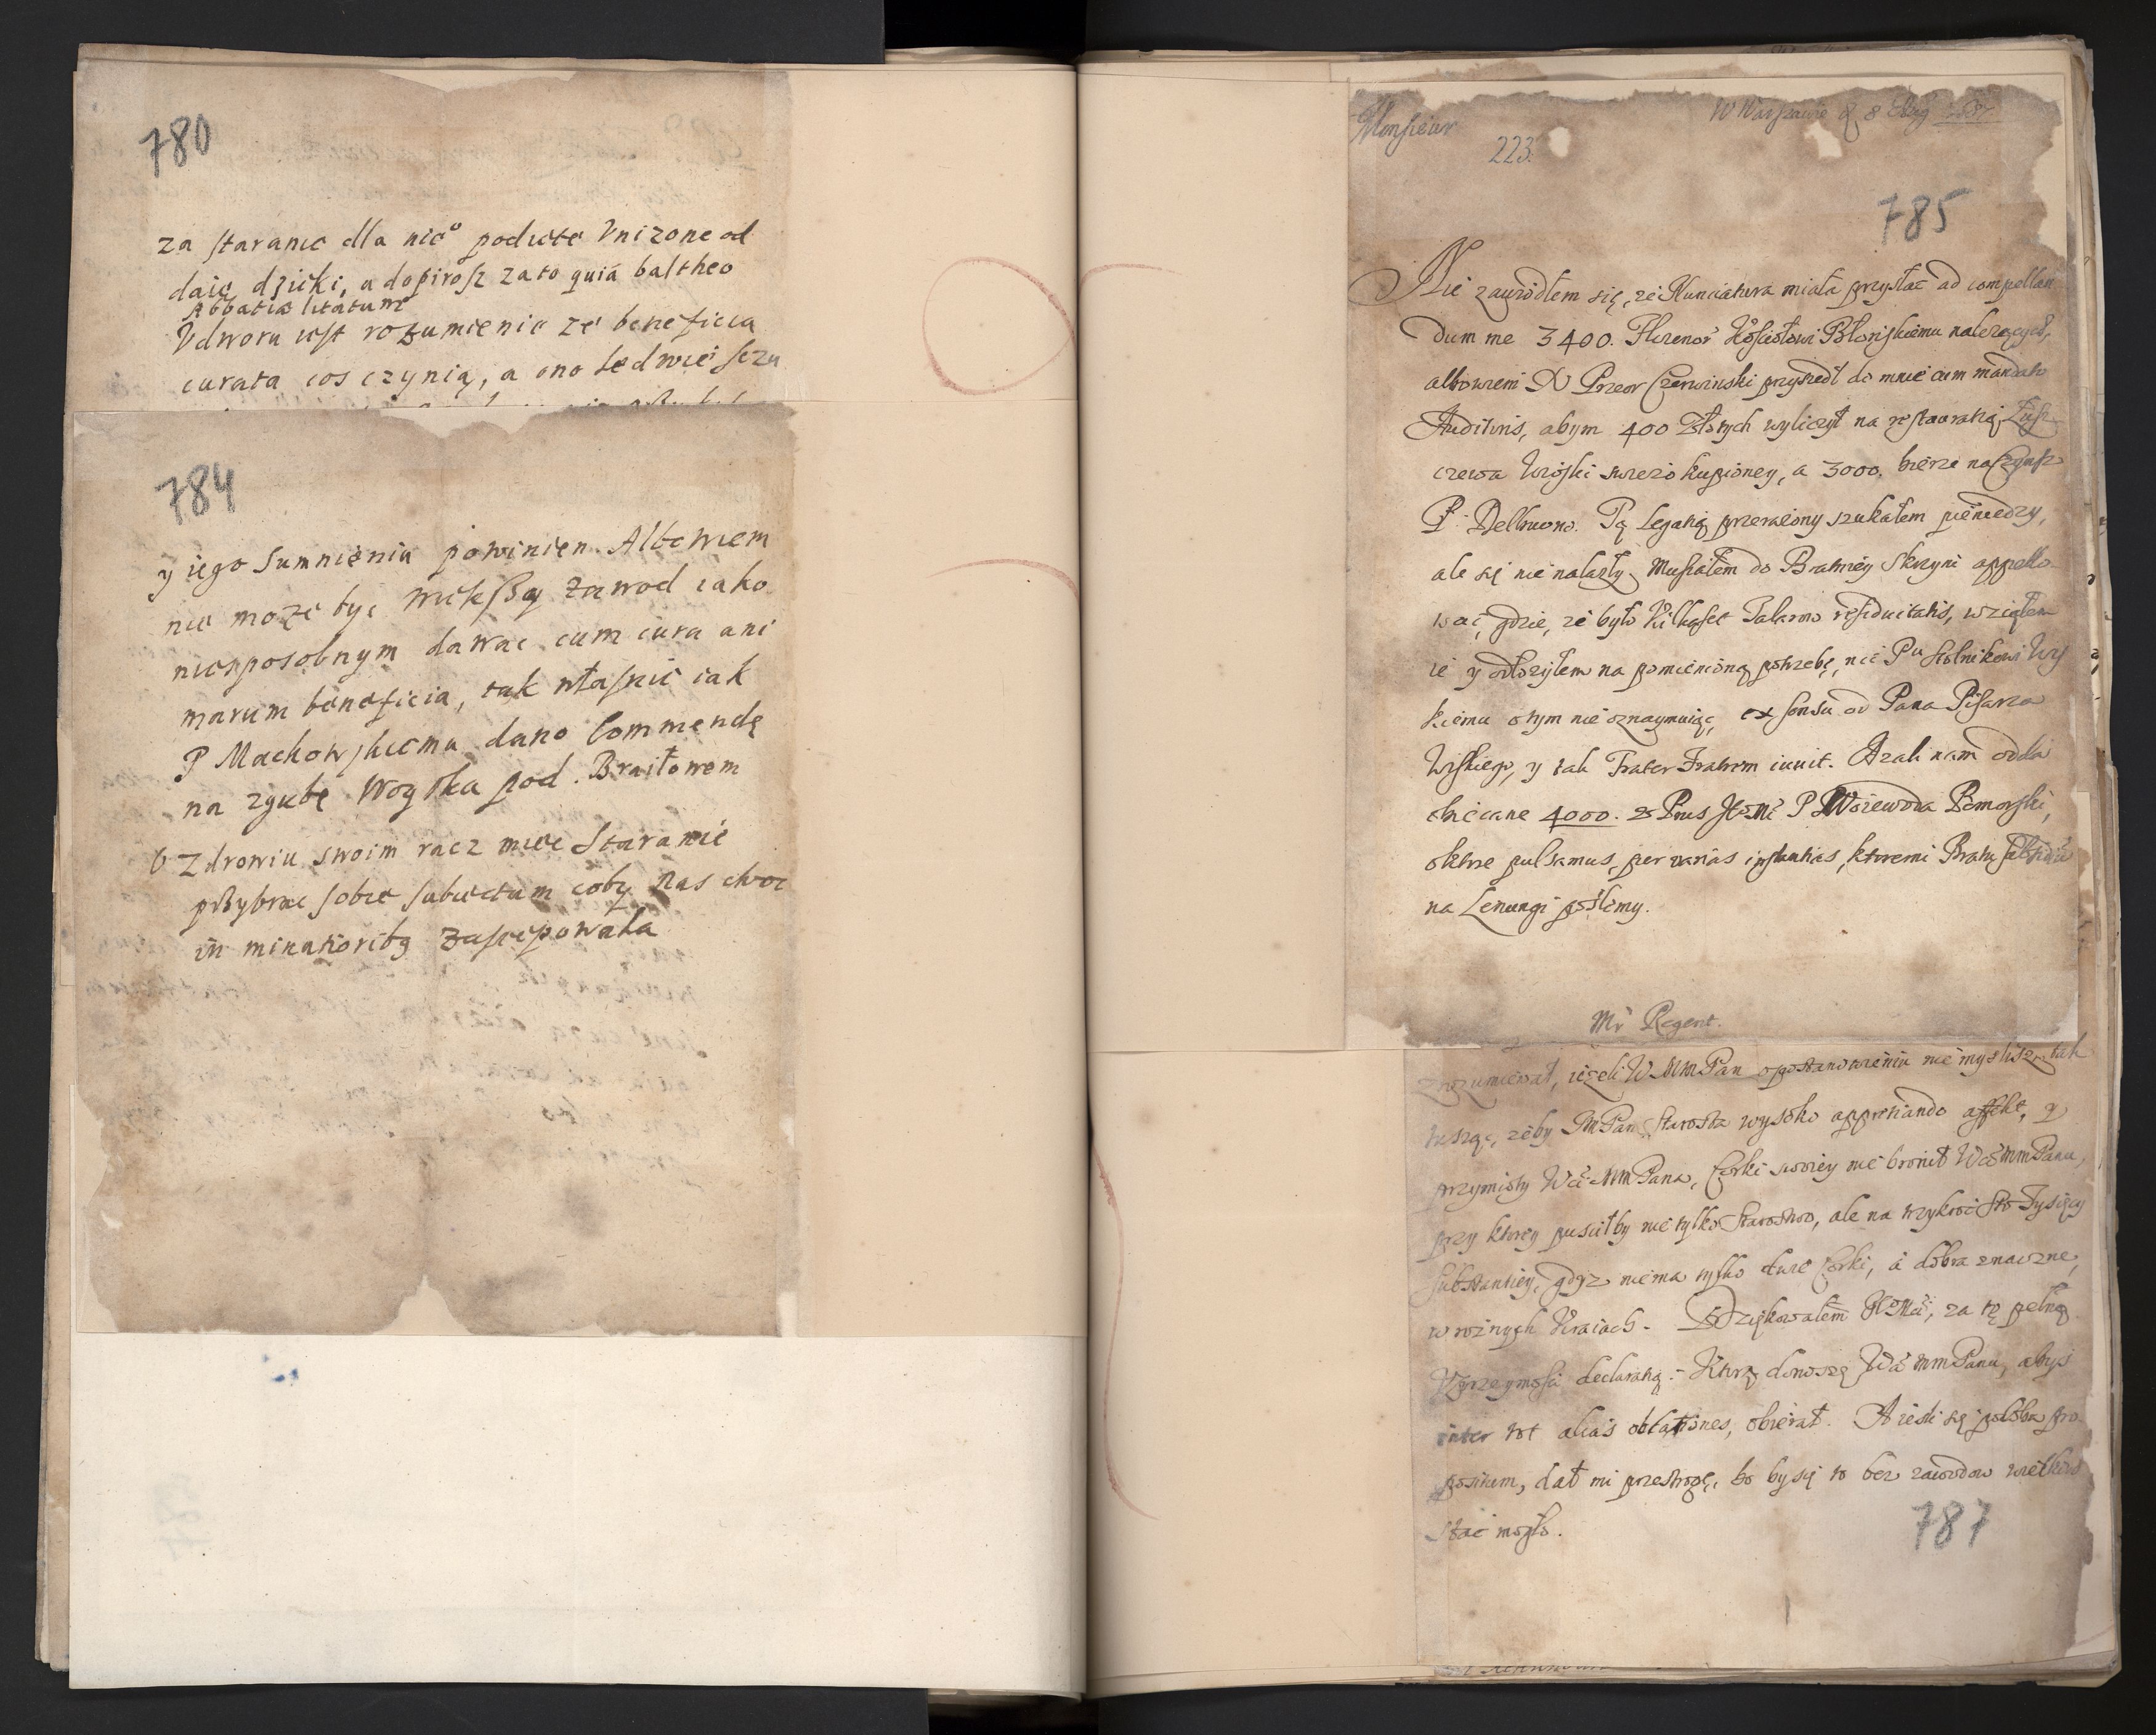 780
za staranie dla nieº podięte Vnizone od
daię dzięki, a dopirosz zato quia baltheo
Abbatia litatum
Vdworu iest rozumienie ze beneficia
curata cos czynią, a ono ledwie szcu
784
y iego Sumnieniu powinien. Albowiem
nie moze byc większy zawod iako
niesposobnym dawac cum cura ani
marum beneficia, tak własnie iak
P Machowskiemu dano Commendę
na zgubę Woyska pod. Braiłowem
O Zdrowiu swoim racz miec Staranie
przybrac sobie subiectum coby nas choc
in minutioribq zastępowała
Monsieur
W Warszawie d 8 Aug
223.
785
Nie zawiodłem się, ze Nunciatura miała przysłac ad compellan
dum me 3400. Florenow Kosciołowi Błonskiemu nalezących,
albowiem X Przeor Czerwinski przyszedł do mnie cum mandato
Auditoris, abym 400 Złotych wyliczył na restauratią
czewa Wioski swiezo kupioney, a 3000. bierze na Czynsz
P. Tą Legatią przerazony szukałem pieniedzy,
ale się nie nalazły Musiałem do Bratniey Skrzyni appello
wac, gdzie, ze było Kilkaset Talarow residuitatis, wziąłem
ie y odłozyłem na pomienioną potrzebę, nic Pu Stolnikowi Wis
kiemu o tym nie oznaymuiąc, ex sensu od Pana Pisarza
Wiskiego, y tak Frater Fratrem iuuit. Azali nam odda
obiecane 4000. z Prus JeoMć P Woiewoda Pomorski,
oktore pulsamus, per varias instantias, ktoremi Bratu
na Lenungi poslemy.
Mr Regent.
zrozumiewał, iezeli W MMPan opostanowieniu nie myslisz, tak
tuszę, zeby JmPan Starosta wysoko appretiando affekt, y
przymioty Wać MMPana, Corki swoiey nie bronił Wać MMPanu,
przy ktorey pusciłby nie tylko Starostwo, ale na trzykroć Sto Tysięcy
Substantiey, gdyz niema tylko dwie Corki, a dobra znaczne,
w roznych Kraiach. Dziękowałem JeoMći, za tę pełną
Vprzeymosci declaratią. Ktorą donoszę Wać MMPanu, abys
inter tot alias oblationes, obierał. A iesli się podoba pro
positum, dał mi przestrogę, bo by się to bez zawodow wielkich
stac mogło.
787